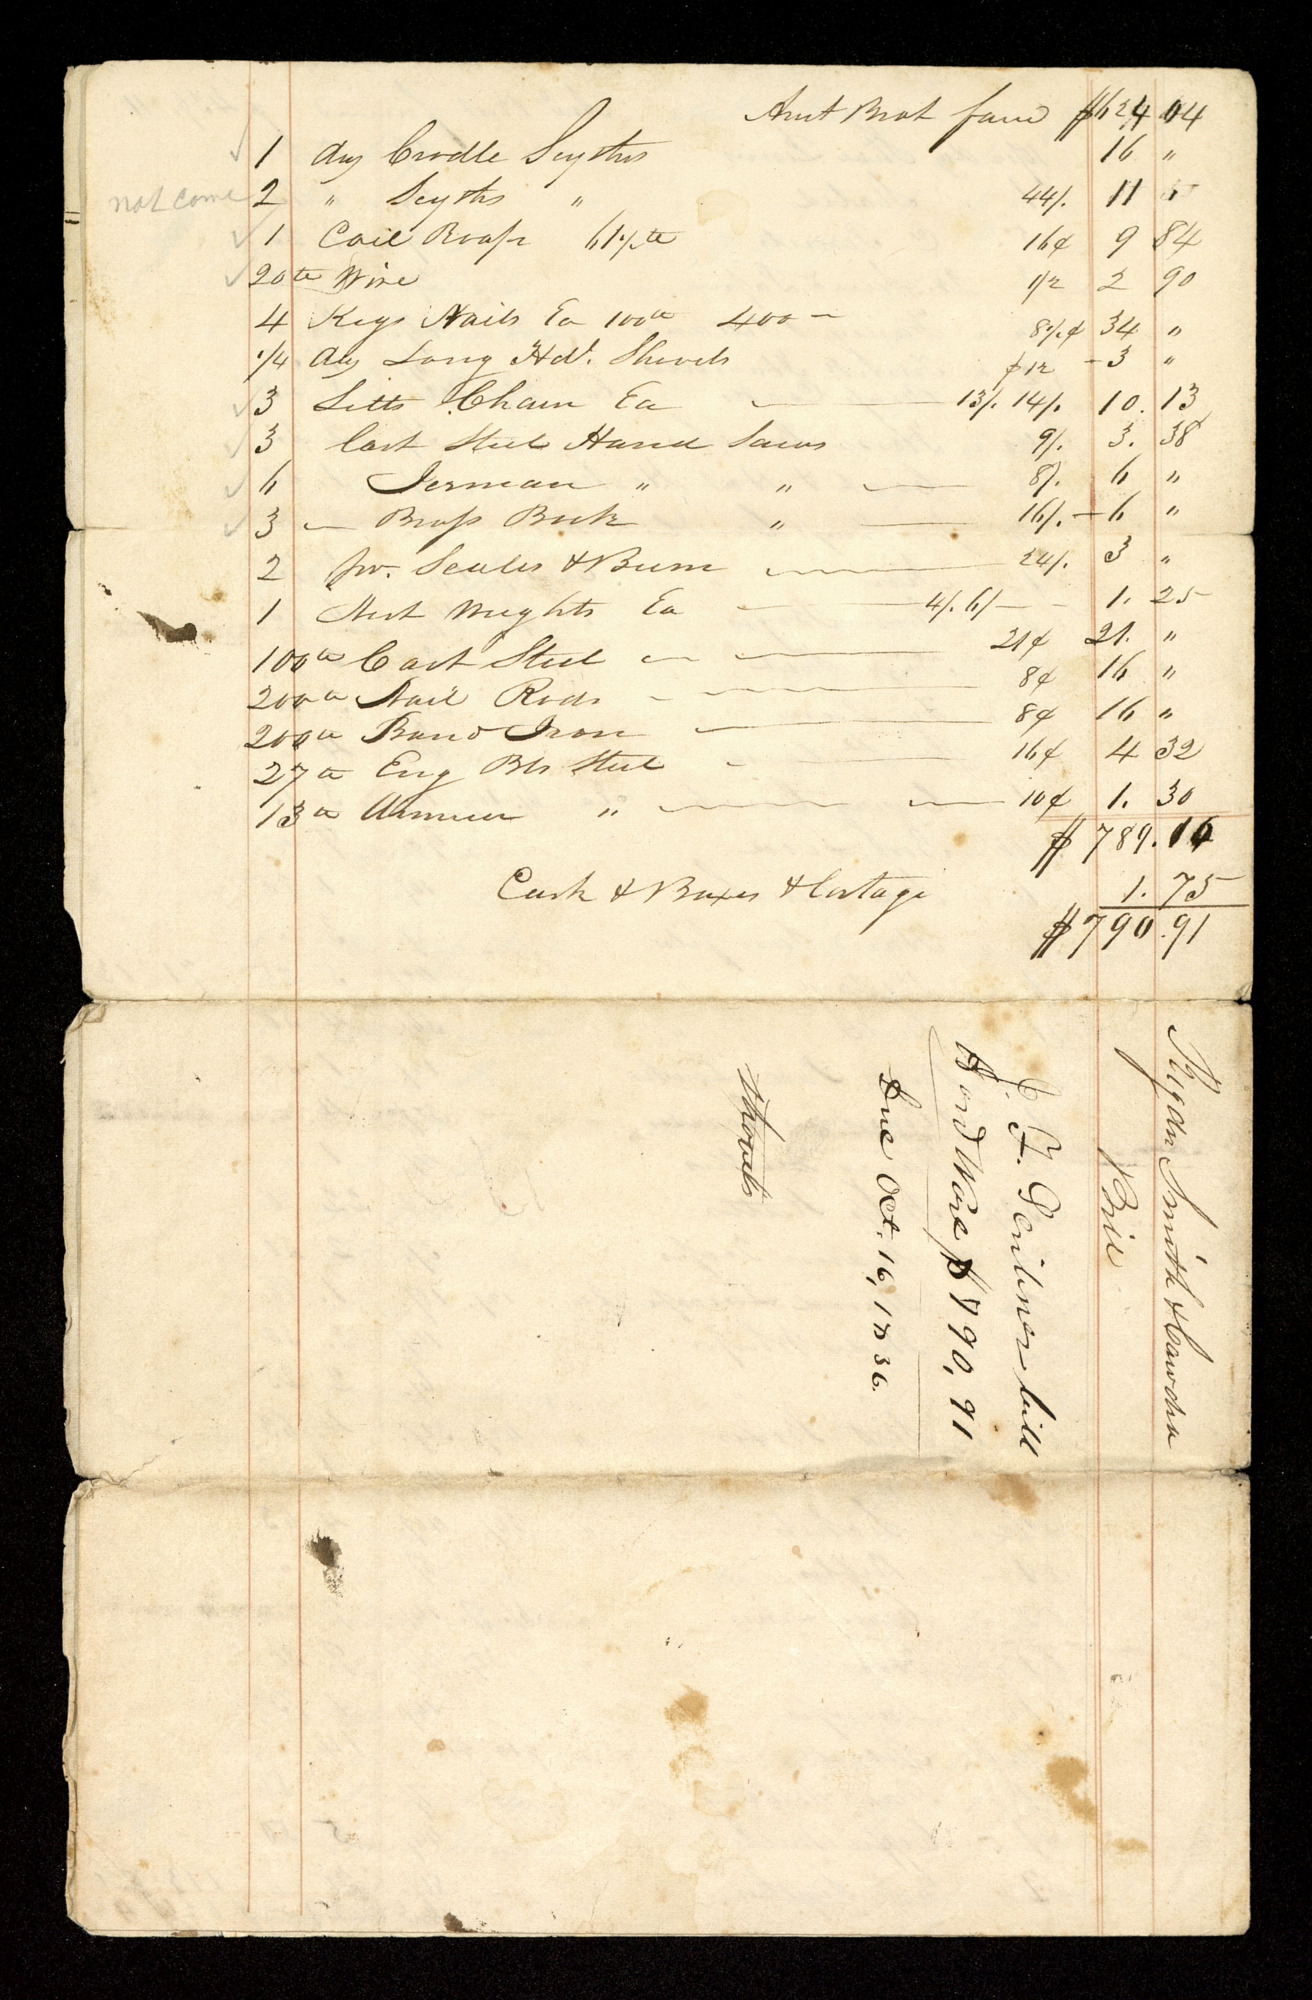 Amt Brot forw $624 04
1 doz Cradle Scythes 16 "
not come 2 " Scyths " 44/. 11
1 Coil Roap 61½ lb 16¢ 9 84
20 lb Wire 1/2 2 90
4 Kegs Nails Ea 100 lb 400 — 8½¢ 34 "
1/4 doz Long Hdl. Shovels $12 – 3 "
3 Setts Chain Ea 13/. 14/. 10. 13
3 Cast Steel Hand Saws 9/. 3. 38
6 German " " 8/. 6 "
3 — Brass Back " 16/. – 6 "
2 pr. Scales & Beem 24/. 3 "
1 Nest Weights Ea 4/. 6/ – – 1. 25
100 lb Cast Steel 21¢ 21. "
200 lb Nail Rods 8¢ 16 "
200 lb Band Iron 8¢ 16 "
27 lb Eng Bls Steel 16¢ 4 32
13 lb " 10¢ 1. 30
$789.16
Cask & Boxes & Cartage 1.75
$790.91
Smith &
Bill
J. F. bill
Hard Ware $790,91
Due Oct. 16, 1836.
Shovels